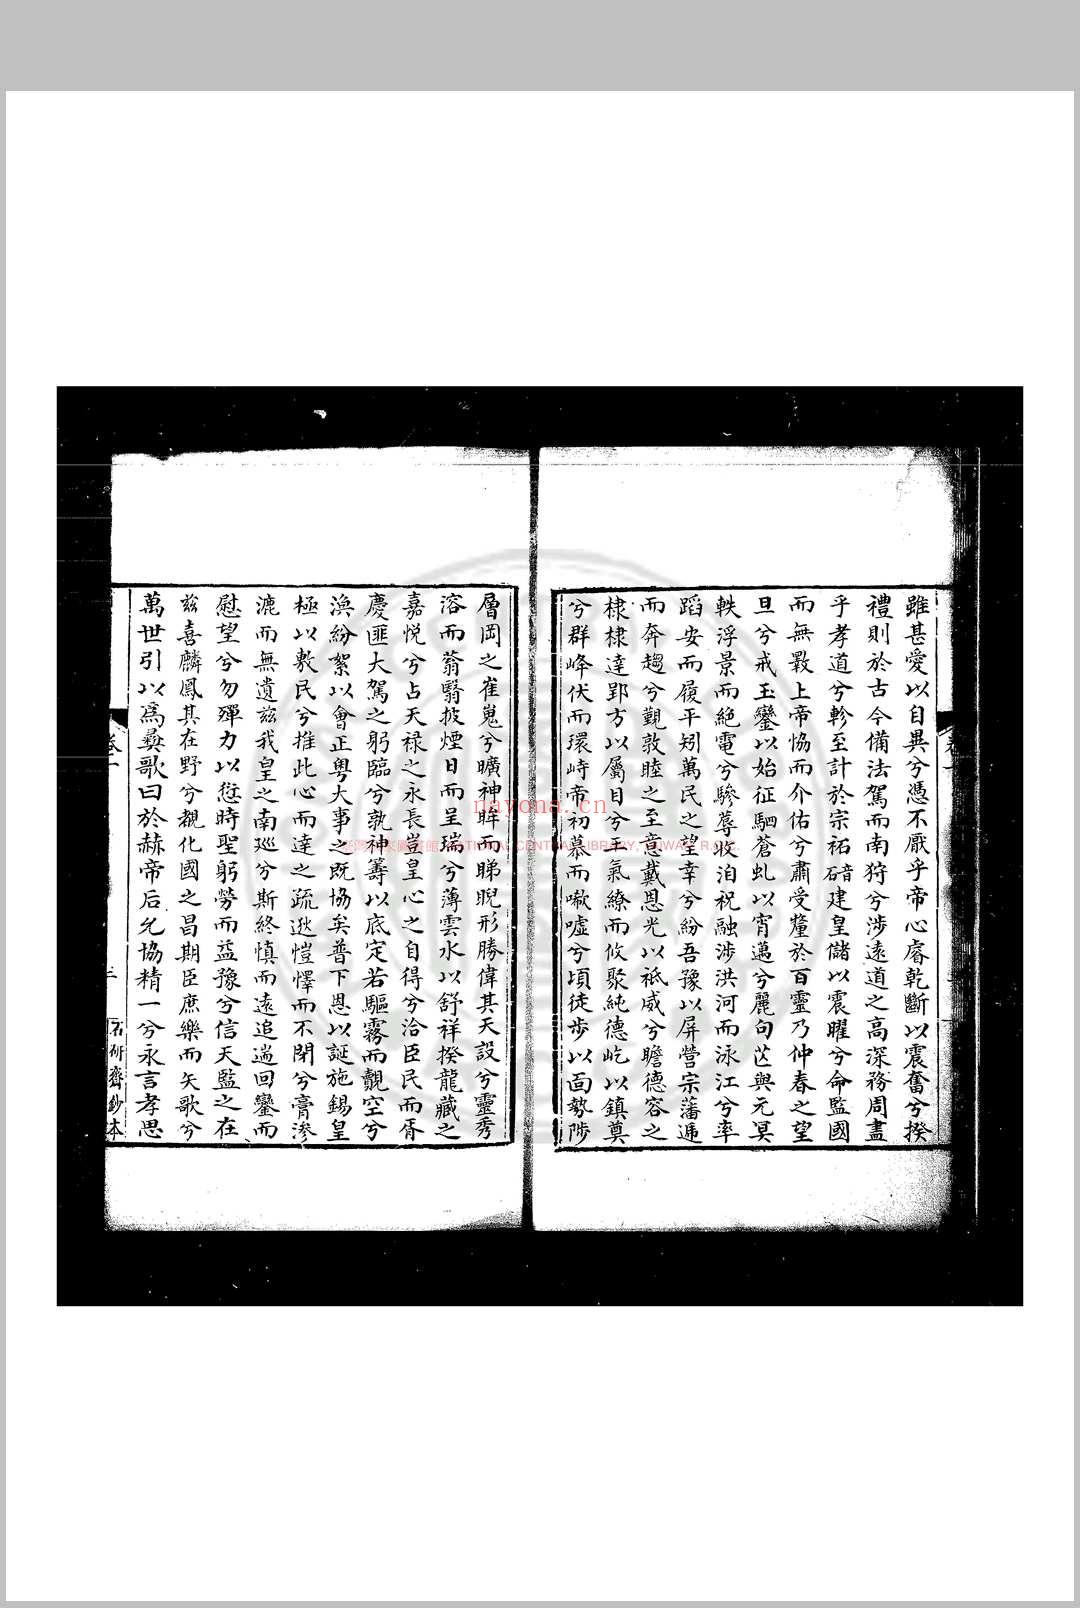 雖甚愛以自異兮憑不厭乎帝心睿乾斷以震奮兮揆
禮則於古今備法駕而南狩兮涉遠道之高深務周盡
乎孝道兮軫至計於宗祏碚建皇儲以震曜兮命監國
而無斁上帝恊而介佑兮肅受釐於百靈乃仲春之望
旦兮戒玉鑾以始征駟蒼虬以宵邁兮麗句芒與元冥
軼浮景而絕電兮驂蓐收洎祝融涉洪河而泳江兮率
蹈安而履平矧萬民之望幸兮紛吾豫以屏營宗藩逓
而奔趨兮覩敦睦之至意戴恩光以祇威兮瞻德容之
棣棣達郢方以屬目兮平氣繚而攸聚純德屹以鎮奠
兮群峰伏而環峙帝初慕而嗽嘘兮頃徒步以面勢陟
層岡之崔嵬兮曠神眸而睇睨形勝偉其天設兮靈秀
溶而蓊翳披煙日而呈瑞兮薄雲水以舒祥揆龍藏之
嘉悦兮占天禄之永長皇心之自得兮洽臣民而胥
慶匪大駕之躬臨兮孰神籌以底定若驅霧而覩空兮
渙紛絮以會正粤大事之既協矣普下恩以誕施錫皇
極以敷民兮推此心而達之疏逖愷懌而不閉兮膏滲
漉而無遺兹我皇之南廵兮斯終慎而遠追遄回鑾而
慰望兮勿殫力以愆時聖躬勞而益豫兮信天監之在
兹喜麟鳳其在野兮覩化國之昌期臣庶樂而矢歌兮
萬世引以爲彛歌曰於赫帝后允協精一兮永言孝思
卷一
三
石研齋鈔本
nayona.cn
NATIONAL CENTRAL LIBRARY, TAIWAN, R.O.C.